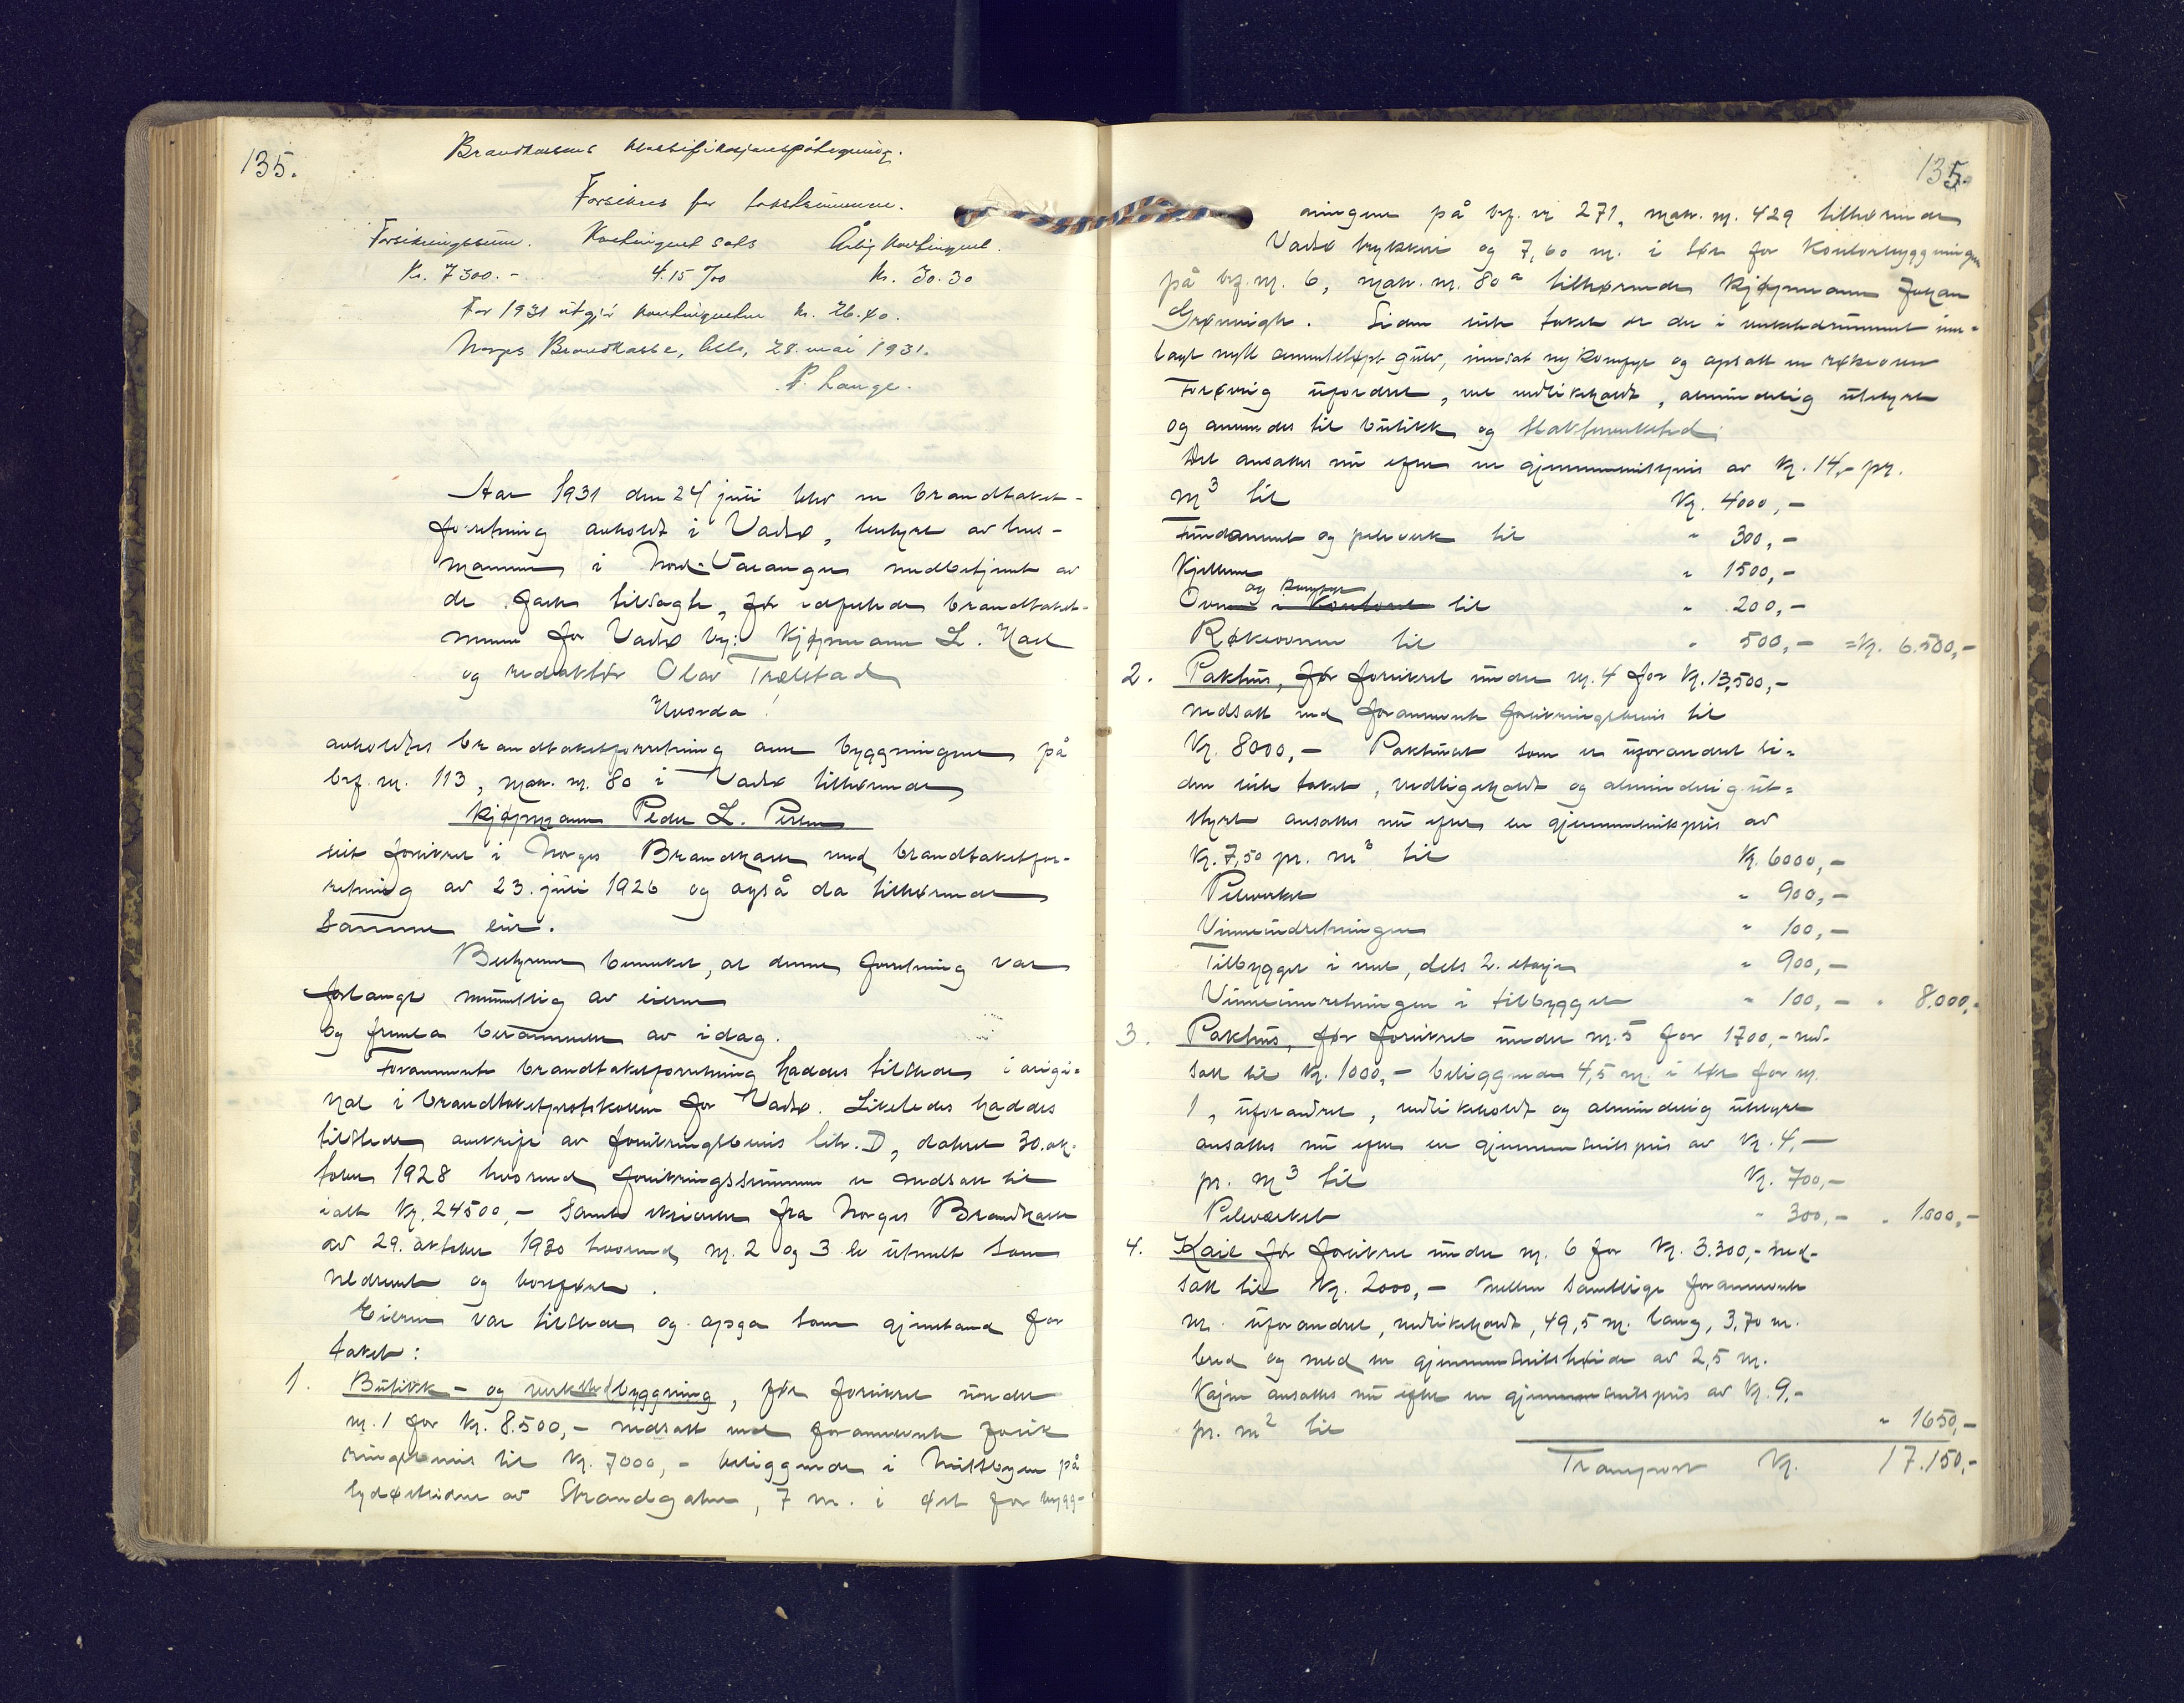 135.
Brandkassens klassifikasjonspåtegning.
Forsikres for takstsummene.
Forsikringssum. Kontingent sats Årlig kontingent.
Kr. 7300.- 4.15 ‰ kr. 30.30
For 1931 utgjør kontingenten kr. 26.40.
Norges Brandkasse, Oslo, 28. mai 1931.
P. Lange.
Aar 1931 den 24 juli blev en brandtakst-
forretning avholdt i Vadsø, bestyrt av lens-
mannen i Nord-Varanger medbetjent av
de fast tilsagte, før edfestede brandtakst-
menn for Vadsø by: Kjøpmann L. Hall
og redaktør Olav Trælstad
Hvorda!
avholdtes brandtakstforretning over byggningene på
brf. nr. 113, matr. nr. 80 i Vadsø tilhørende
kjøpmann Peder L. Persen
sist forsikret i Norges Brandkasse med brandtakstfor-
retning av 23. juli 1926 og også da tilhørende
samme eier.
Bestyreren bemerket, at denne forretning var
forlangt mundtlig av eieren
og fremla berammelse av idag.
Forannevnte brandtakstforretning haddes tilstede i origi-
nal i brandtakstprotokollen for Vadsø. Likeledes haddes
tilstede avskrift av forsikringsbevis litr. D, datert 30. ok-
tober 1928 hvorved forsikringssummen er nedsatt til
ialt Kr. 24500,- samt skrivelse fra Norges Brandkasse
av 29. oktober 1930 hvorved nr. 2 og 3 er utmelt som
nedrevet og bortført.
Eieren var tilstede og opga som gjenstand for
takst:
1. Butikk- og verkstedbyggning, før forsikret under
nr. 1 for Kr. 8.500,- nedsatt ved forannevnte forsik
ringsbevis til Kr. 7000,- beliggende i Midtbyen på
sydøstsiden av Strandgaten, 7 m. i øst for bygg-
135.
ningene på brf. nr 271, matr. nr. 429 tilhørende
Vadsø trykkeri og 7,60 m. i sør for kontorbyggningen
på brf. nr. 6, matr. nr. 80 a tilhørende kjøpmann Johan
Grønvigh. Siden siste takst er der i verkstedrummet inn-
lagt nytt sementstøpt gulv, innsat ny komfyr og opsatt en røkeovn
Forøvrig uforandret, vel vedlikeholdt, almindelig utstyrt
og anvendes til butikk og slakterverksted
Det ansattes nu efter en gjennemsnitspris av Kr. 14,- pr.
m³ til Kr. 4000,-
Fundament og peleverk til " 300,-
Kjelleren " 1500,-
Ovn og komfyr i kontoret til " 200,-
Røkeovnen til " 500,- = Kr. 6.500,-
2. Pakhus, før forsikret under nr. 4 for Kr. 13,500,-
nedsatt ved forannevnte forsikringsbevis til
Kr. 8000,- Pakhuset som er uforandret si-
den siste takst, vedligeholdt og almindelig ut-
styrt ansattes nu efter en gjennemsnitspris av
Kr. 7,50 pr. m³ til Kr. 6000,-
Peleverket " 900,-
Vinneindretningen " 100,-
Tilbygget i vest, dels 2. etasje " 900,-
Vinneinnretningen i tilbygget " 100,- " 8.000,-
3. Pakhus, før forsikret under nr. 5 for 1700,- ned-
satt til Kr. 1000,- beliggende 4,5 m. i sør for nr.
1, uforandret, vedlikeholdt og almindelig utstyrt
ansattes nu efter en gjennemsnitspris av Kr. 4,-
pr. m³ til Kr. 700,-
Peleverket " 300,- " 1.000,-
4. Kaie før forsikret under nr. 6 for Kr. 3.300,- ned-
satt til Kr. 2000,- mellem samtlige forannevnte
nr. uforandret, vedlikeholdt, 49,5 m. lang, 3,70 m.
bred og med en gjennemsnitshøide av 2,5 m.
Kajen ansattes nu efter en gjennemsnitspris av Kr. 9,-
pr. m² til " 1650,-
Transport Kr. 17.150,-